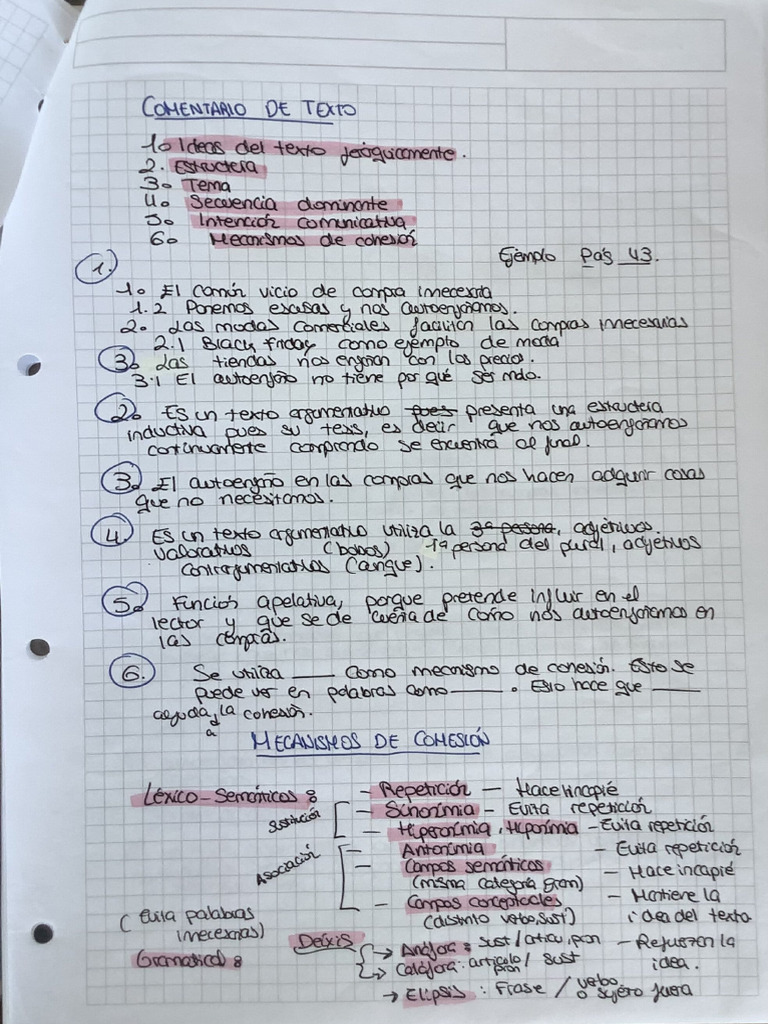 COMENTARIO DE TEXTO
1o Ideas del texto jerárquicamente.
2. Estructura
3o Tema
4o Secuencia dominante
5o Intención comunicativa
6o Mecanismos de cohesión
Ejemplo Pág 43.
1.
1o El común vicio de compra innecesaria
1.2 Ponemos escusas y nos autoengañamos.
2o Las modas comerciales facilitan las compras innecesarias
2.1 Black friday como ejemplo de moda
3o Las tiendas nos engañan con los precios.
3.1 El autoengaño no tiene por qué ser malo.
2o Es un texto argumentativo pues presenta una estructura
inductiva pues su tesis, es decir que nos autoengañamos
continuamente comprando se encuentra al final.
3o El autoengaño en las compras que nos hacen adquirir cosas
que no necesitamos.
4 Es un texto argumentativo utiliza la 3ª persona, adjetivos
valorativos (bobos) 1ª persona del plural, adjetivos
contrargumentativos (aunque).
5o Función apelativa, porque pretende influir en el
lector y que se de cuenta de como nos autoengañamos en
las compras.
6. Se utiliza ___ como mecanismo de cohesión. Esto se
puede ver en palabras como ___. Esto hace que ___
ayuda a la cohesión.
MECANISMOS DE COHESIÓN
Léxico-Semánticos: - Repetición - Hace hincapié
Sustitución - Sinonimia - Evita repetición
- Hiperonimia, Hiponimia - Evita repetición
Asociación - Antonimia - Evita repetición
- Campos semánticos - Hace incapié
(misma categoría gram)
- Campos conceptuales - Mantiene la
(distinto verbo, sust) idea del texto
(Evita palabras
innecesarias)
Gramatical: Deíxis → Anáfora: sust / articu, pron - Refuerzan la
→ Catáfora: artículo / sust idea.
pron
→ Elipsis: Frase / verbo
o sujeto fuera